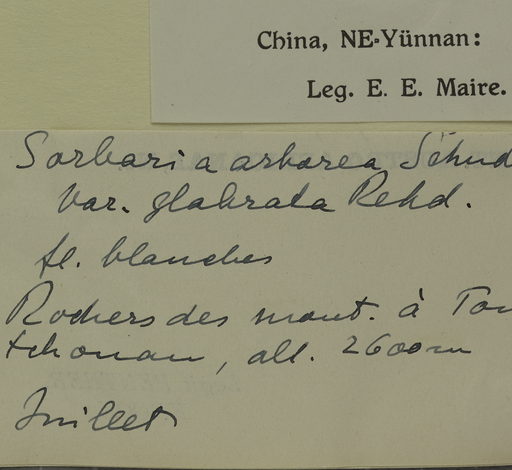 China, NE-Yünnan:
Leg. E. E. Maire.
Sorbaria arborea Schnd
var. glabrata Rehd.
fl. blanches
Rochers des mont. à Ton
tchouan, alt. 2600m
Juillet